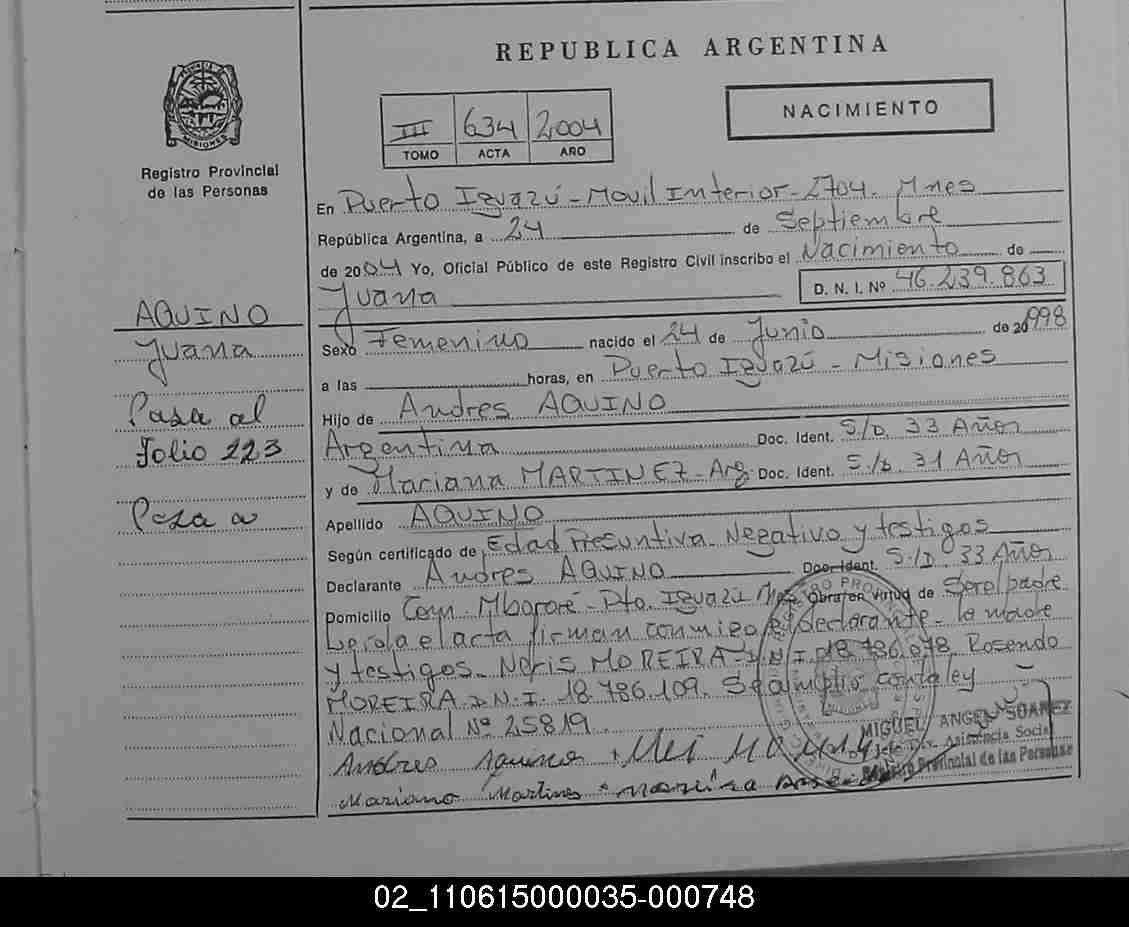 REPUBLICA ARGENTINA
PROVINCIA DE
MISIONES
Registro Provincial
de las Personas
III 634 2004
TOMO ACTA AÑO
NACIMIENTO
En Puerto Iguazú - Movil Interior - 2704. Mnes
República Argentina, a 24 de Septiembre
de 2004 Yo, Oficial Público de este Registro Civil inscribo el Nacimiento de
Juana D. N. I. Nº 46.239.863
Sexo Femenino nacido el 24 de Junio de 1998
a las horas, en Puerto Iguazú - Misiones
Hijo de Andres AQUINO
Argentina Doc. Ident. S/D. 33 Años
y de Mariana MARTINEZ - Arg. Doc. Ident. S/D. 31 Años
Apellido AQUINO
Según certificado de Edad Presuntiva Negativo y testigos
Declarante Andres AQUINO Doc. Ident. S/D 33 Años
Domicilio Com. Mbororé - Pto. Iguazú Mnes Obra en virtud de Ser el padre
Leida el acta firman conmigo el declarante - la madre
y testigos. Neris MOREIRA - D.N.I. 18.786.078. Rosendo
MOREIRA D.N.I. 18.786.109. Se amplio con la ley
Nacional Nº 25819
MIGUEL ANGEL SUAREZ
Jefe Div. Asistencia Social
Registro Provincial de las Personas
Andres Aquino
Mariano Martines
AQUINO
Juana
Pasa al
Folio 223
Pasa a
02_110615000035-000748